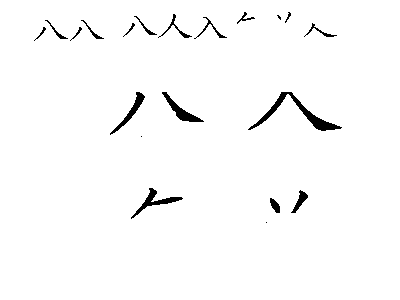 八八 八人入𠂉丷𠆢
八 𠆢
𠂉 丷